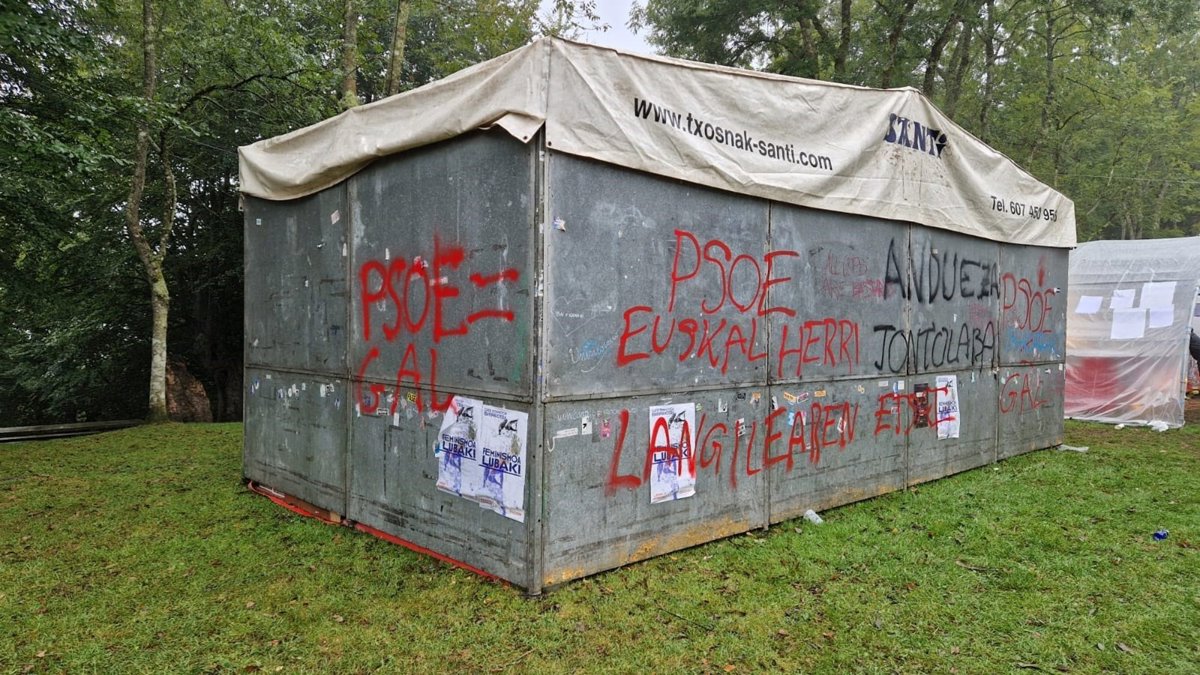 www.txosnak-santi.com
SANTI
PSOE =
GAL
PSOE
EUSKAL HERRI
LANgILEAREN ETSE
ANDUEZA
JONTOLABA
PSOE
GAL
FEMINISMOA
LUBAKI
FEMINISMOA
LUBAKI